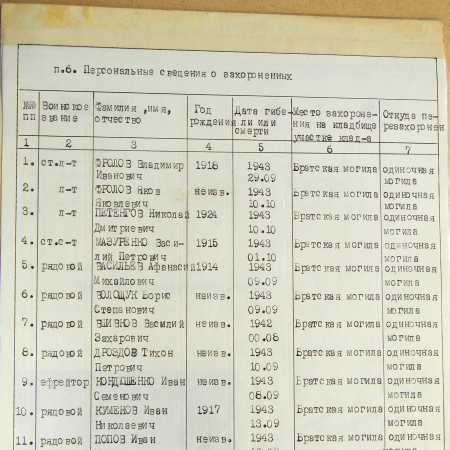 п.6. Персональные сведения о захороненных
№№ Воинское Фамилия ,имя, Год Дата гибе- Место захороне- Откуда пе-
пп звание отчество рождения ли или ния на кладбище резахоронен
смерти участке клад-а
1 2 3 4 5 6 7
1. ст.л-т ФРОЛОВ Владимир 1918 1943 Братская могила одиночная
Иванович 29.09 могила
2. л-т ФРОЛОВ Яков неизв. 1943 Братская могила одиночная
Яковлевич 10.10 могила
3. л-т ПЕТЕНГОВ Николай 1924 1943 Братская могила одиночная
Дмитриевич 10.10 могила
4. ст.с-т МАЗУРЕНКО Васи- 1915 1943 Братская могила одиночная
лий Петрович 01.10 могила
5. рядовой ВАСИЛЬЕВ Афанасий 1914 1943 Братская могила одиночная
Михайлович 09.09 могила
6. рядовой ВОЛОЩУК Борис неизв. 1943 Братская могила одиночная
Степанович 09.09 могила
7. рядовой ВШИВКОВ Василий неизв. 1942 Братская могила одиночная
Захарович 00.08 могила
8. рядовой ДРОЗДОВ Тихон неизв. 1943 Братская могила одиночная
Петрович 10.09 могила
9. ефрейтор КОНДЮШЕНКО Иван неизв. 1943 Братская могила одиночная
Семенович 08.09 могила
10. рядовой КУМЕНОВ Иван 1917 1943 Братская могила одиночная
Николаевич 13.09 могила
11. рядовой ПОПОВ Иван неизв. 1943 Братская могила одиночная